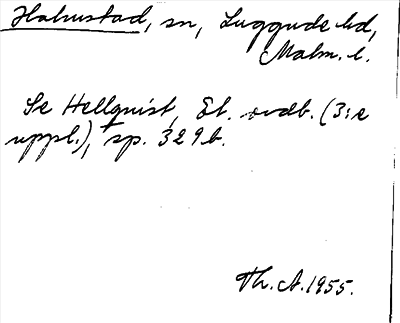 Halmstad, sn, Luggude hd,
Malm. l.
Se Hellquist, Et. ordb. (3:e
uppl.), sp. 329 b.
Th. A. 1955.